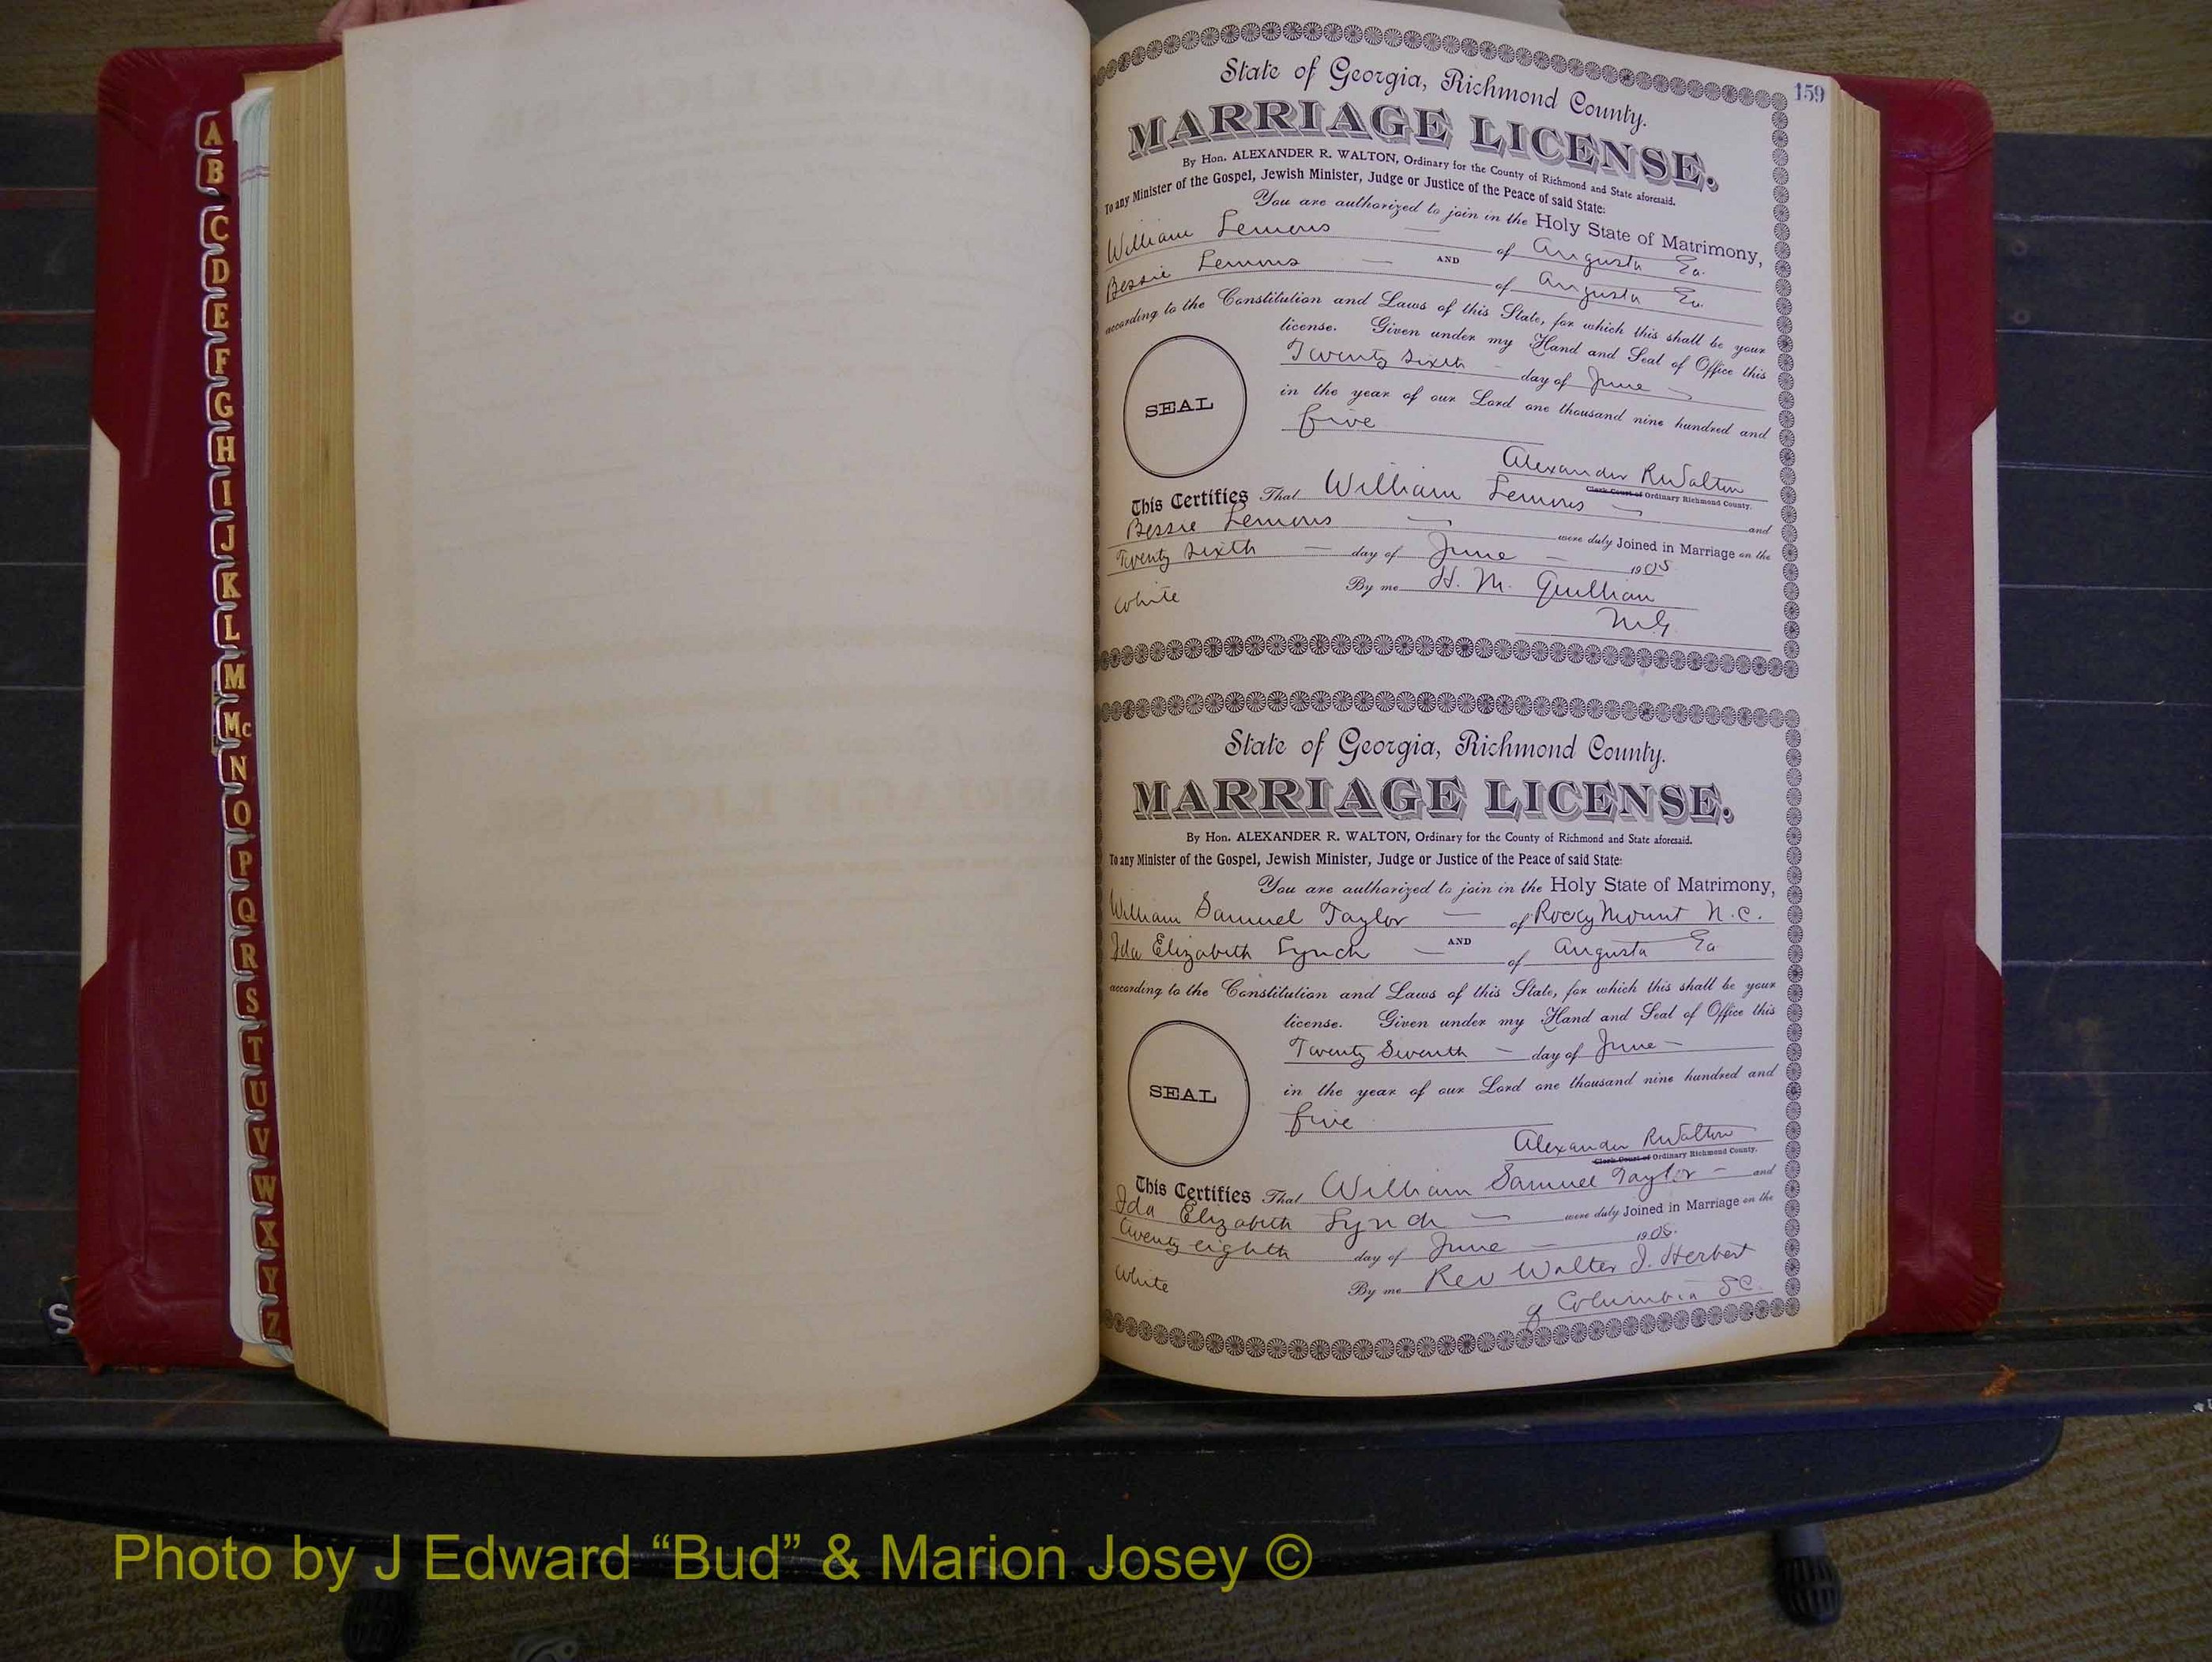 A
B
C
D
E
F
G
H
I
J
K
L
M
Mc
N
O
P
Q
R
S
T
U
V
W
X
Y
Z
S
159
State of Georgia, Richmond County.
MARRIAGE LICENSE.
By Hon. ALEXANDER R. WALTON, Ordinary for the County of Richmond and State aforesaid.
To any Minister of the Gospel, Jewish Minister, Judge or Justice of the Peace of said State:
You are authorized to join in the Holy State of Matrimony,
William Lemons — of Augusta Ga.
AND
Bessie Lemons — of Augusta Ga.
according to the Constitution and Laws of this State, for which this shall be your
license. Given under my Hand and Seal of Office this
Twenty Sixth - day of June -
in the year of our Lord one thousand nine hundred and
five
SEAL
Alexander R Walton
Clerk Court of Ordinary Richmond County.
This Certifies That William Lemons — and
Bessie Lemons — were duly Joined in Marriage on the
Twenty Sixth — day of June — 1905
White By me H. M. Quillian
M.G.
State of Georgia, Richmond County.
MARRIAGE LICENSE.
By Hon. ALEXANDER R. WALTON, Ordinary for the County of Richmond and State aforesaid.
To any Minister of the Gospel, Jewish Minister, Judge or Justice of the Peace of said State:
You are authorized to join in the Holy State of Matrimony,
William Samuel Taylor — of Rocky Mount N.C.
AND
Ida Elizabeth Lynch — of Augusta Ga
according to the Constitution and Laws of this State, for which this shall be your
license. Given under my Hand and Seal of Office this
Twenty Seventh - day of June -
in the year of our Lord one thousand nine hundred and
five
SEAL
Alexander R Walton
Clerk Court of Ordinary Richmond County.
This Certifies That William Samuel Taylor - and
Ida Elizabeth Lynch — were duly Joined in Marriage on the
Twenty eighth day of June — 1905.
White By me Rev Walter I. Herbert
of Columbia S.C.
Photo by J Edward “Bud” & Marion Josey ©